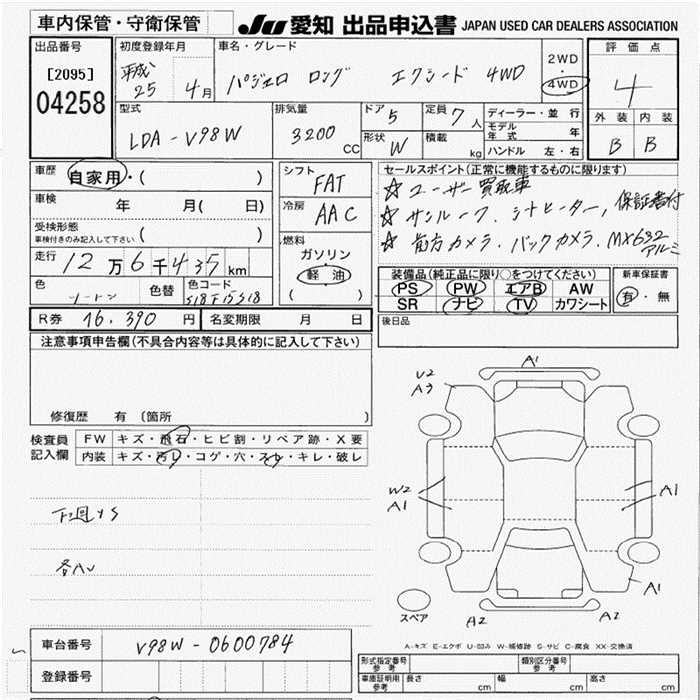 車内保管・守衛保管
JU 愛知 出品申込書 JAPAN USED CAR DEALERS ASSOCIATION
出品番号
[2095]
04258
初度登録年月
平成
25 4月
車名・グレード
パジェロ ロング エクシード 4WD
2WD
・
4WD
評価点
4
外装 内装
B B
型式
LDA-V98W
排気量
3200 CC
ドア 5
形状 W
定員 7人
積載 kg
ディーラー・並行
モデル年式 年
ハンドル 左・右
車歴
自家用・( )
車検 年 月( 日)
受検形態
車検付きのみ記入して下さい ( )
走行 12万6千435km
色 ツートン 色替 色コード
S18F15S18
シフト
FAT
冷房
AAC
燃料
ガソリン
軽油
( )
セールスポイント(正常に機能するものに限ります)
☆ユーザー買取車
☆サンルーフ、シートヒーター、保証書付
☆前方カメラ、バックカメラ、MX632
アルミ
装備品(純正品に限り○をつけてください)
PS PW エアB AW
SR ナビ TV カワシート
新車保証書
有・無
R券 16,390円 名変期限 月 日
後日品
注意事項申告欄(不具合内容等は具体的に記入して下さい)
修復歴 有(箇所 )
検査員
記入欄
FW キズ・飛石・ヒビ割・リペア跡・X要
内装 キズ・汚レ・コゲ・穴・スレ・キレ・破レ
下廻りS
各AU
A1
U2
Aラ
W2
A1
A1
A1
スペア
A2
A2
A-キズ E-エクボ U-凹み W-補修跡 S-サビ C-腐食 XX-交換済
車台番号 V98W-0600784
登録番号
型式指定番号
参考
類別区分番号
参考
車庫証明用
参考
長さ cm 幅 cm 高さ cm